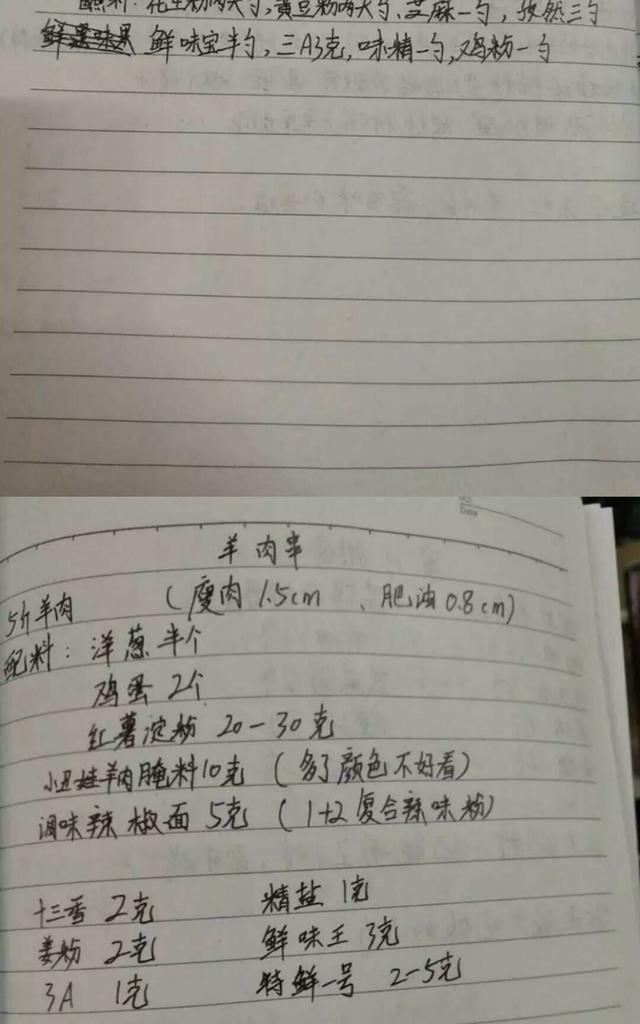 蘸料：花生粉两大勺，黄豆粉两大勺、芝麻一勺，孜然三勺
鲜味宝半勺，三A3克，味精一勺，鸡粉一勺
羊肉串
5斤羊肉 （瘦肉1.5cm、肥油0.8cm）
配料：洋葱半个
鸡蛋2个
红薯淀粉 20-30克
小丑娃羊肉腌料10克（多了颜色不好看）
调味辣椒面 5克（1+2复合辣味粉）
十三香 2克 精盐 1克
姜粉 2克 鲜味王 3克
3A 1克 特鲜一号 2-5克